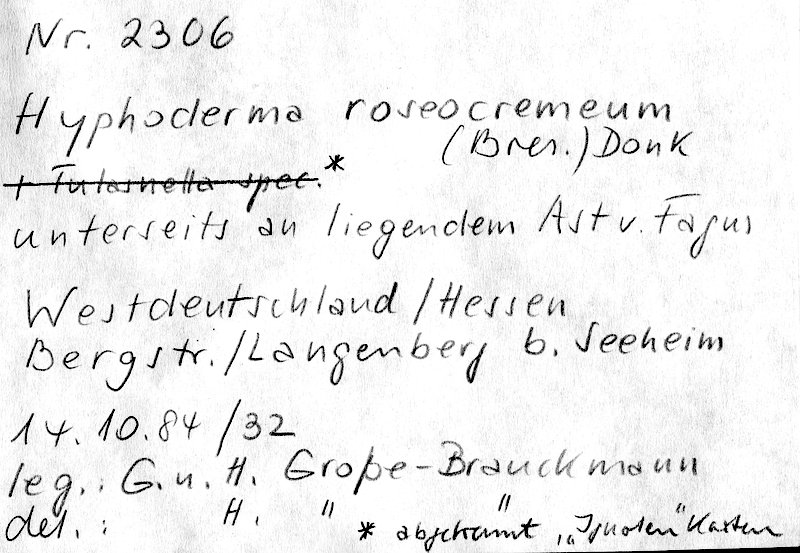 Nr. 2306
Hyphoderma roseocremeum
(Bres.) Donk
+ Tulasnella spec.*
unterseits an liegendem Ast v. Fagus
Westdeutschland/Hessen
Bergstr./Langenberg b. Seeheim
14.10.84/32
leg.: G. u. H. Große-Brauckmann
det.: H. " "
* abgetrennt, „Ignoten" Kasten